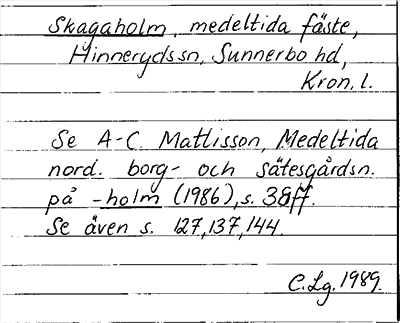 Skagaholm, medeltida fäste,
Hinnerydssn, Sunnerbo hd,
Kron. l.
Se A-C. Mattisson, Medeltida
nord. borg- och sätesgårdsn.
på -holm (1986), s. 38ff.
Se även s. 127, 137, 144.
C. Lg. 1989.